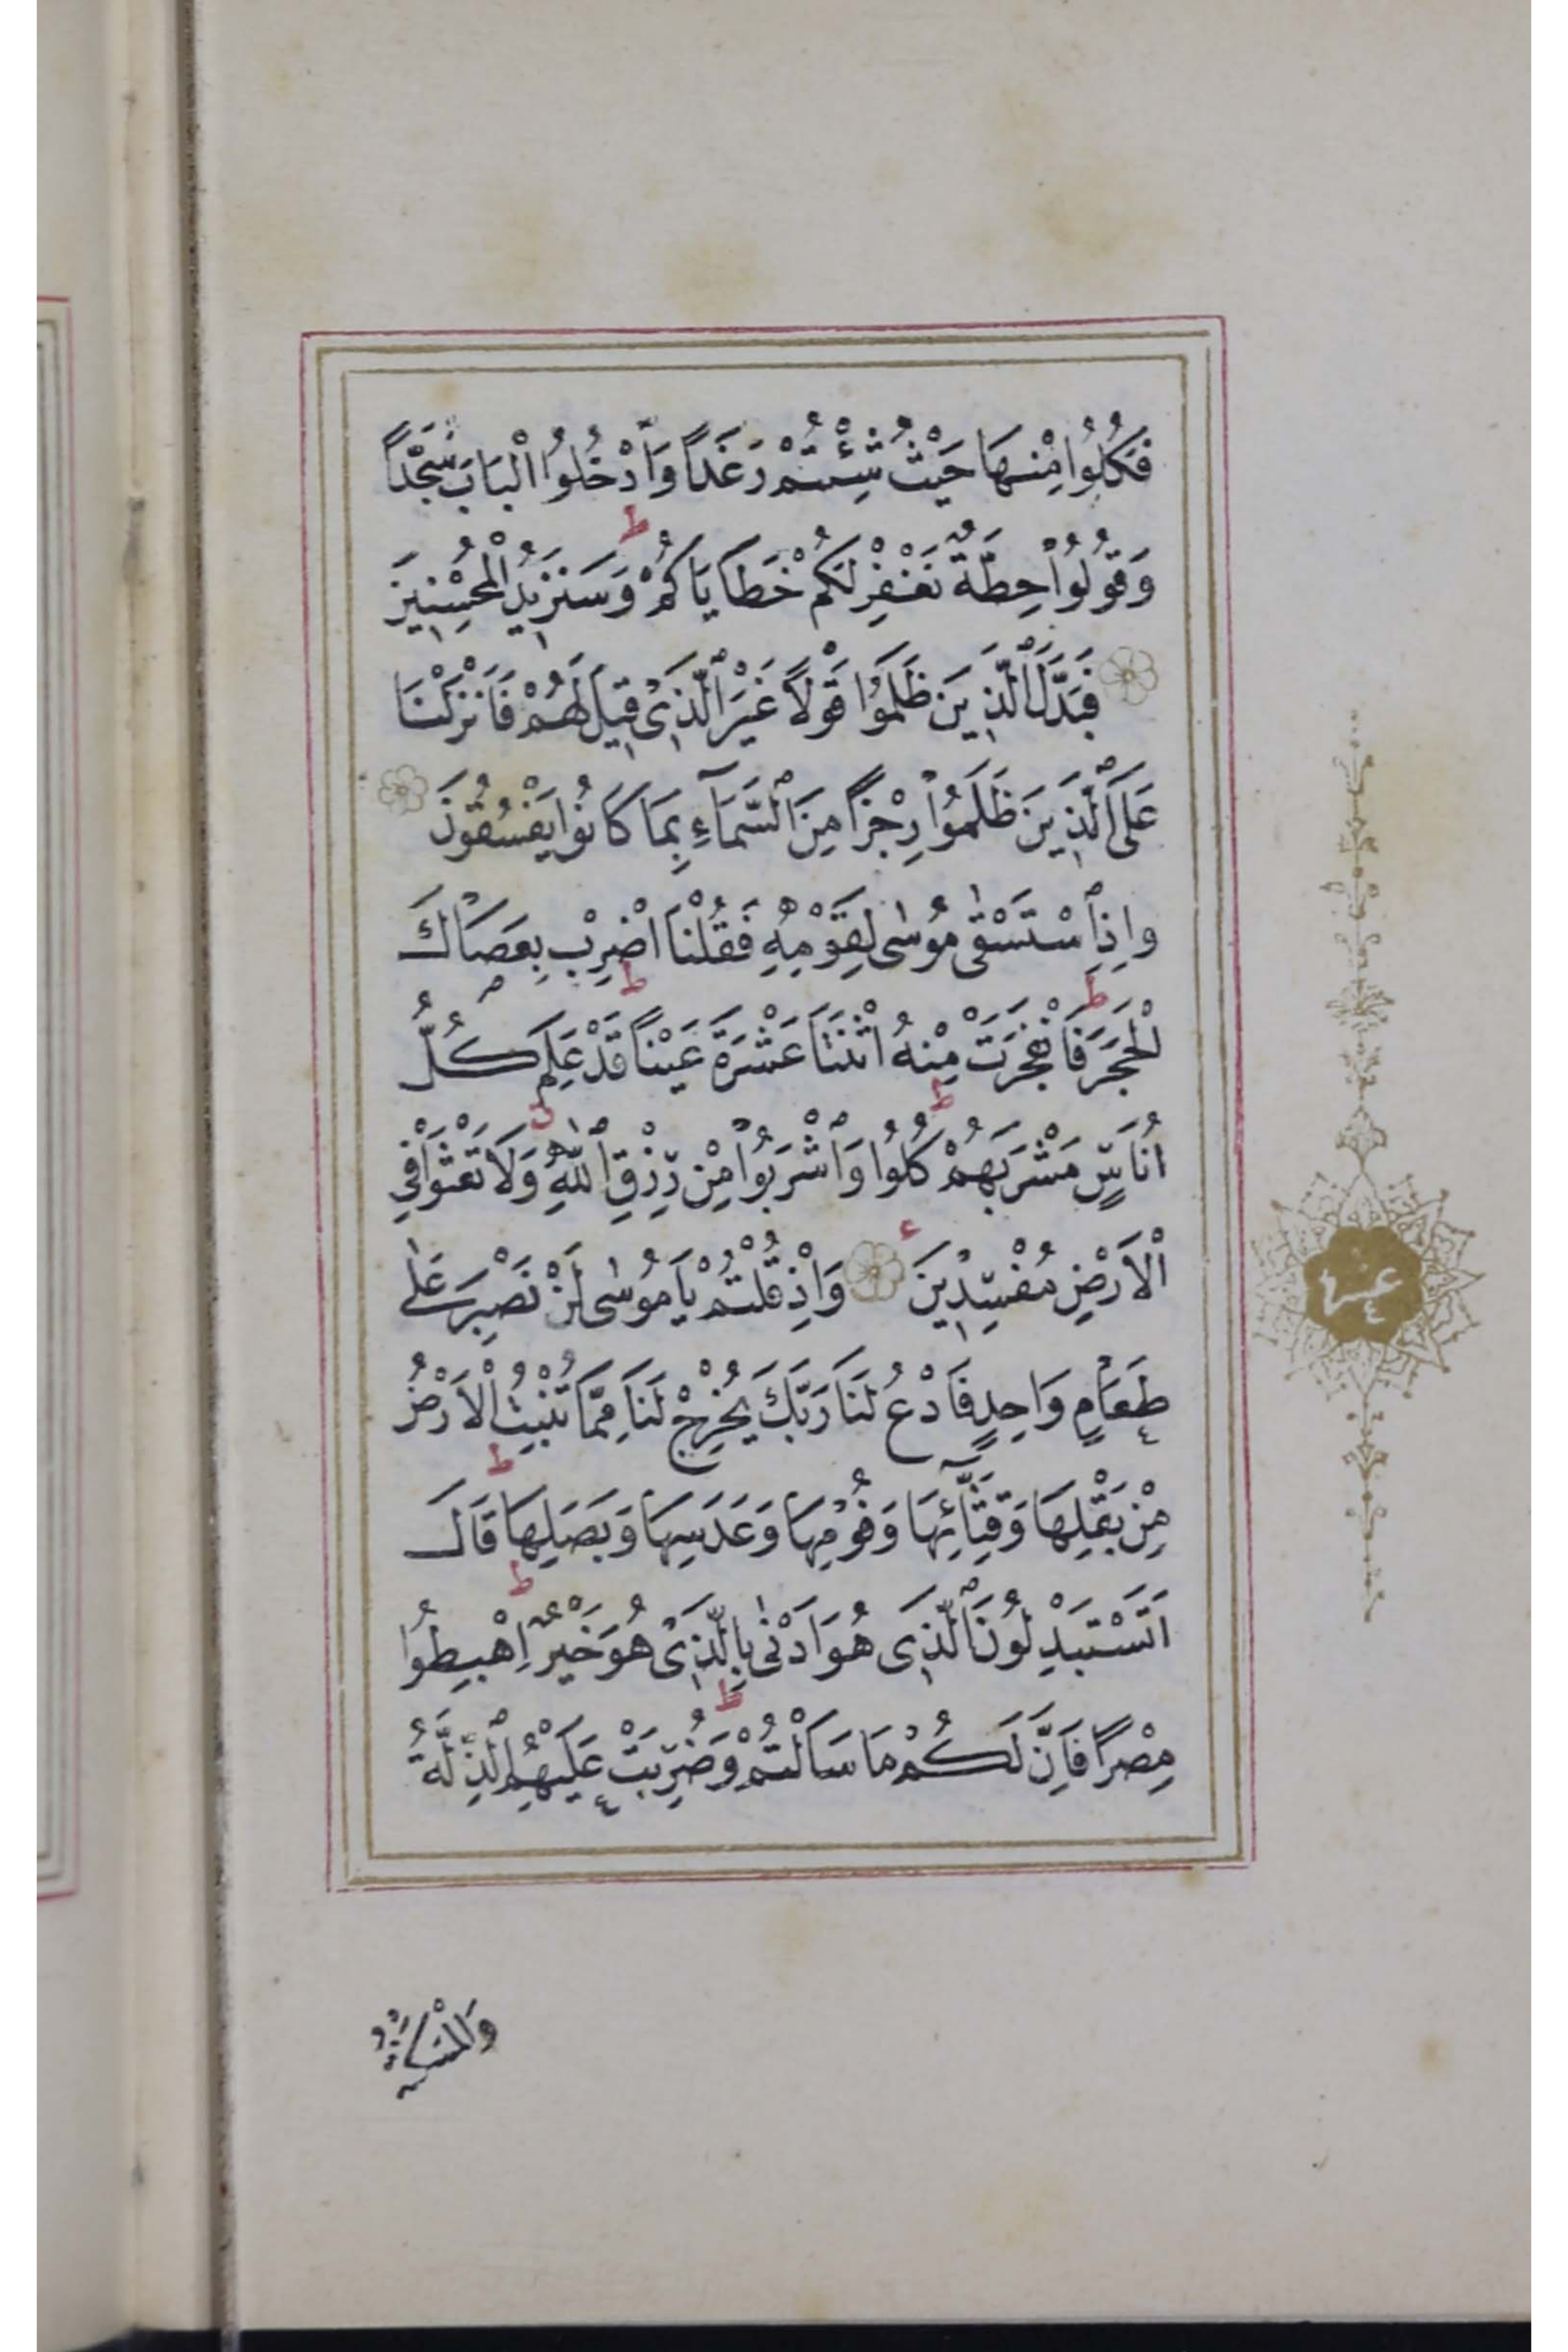 فَكُلُوا مِنْهَا حَيْثُ شِئْتُمْ رَغَدًا وَادْخُلُوا الْبَابَ سُجَّدًا
وَقُولُوا حِطَّةٌ نَغْفِرْ لَكُمْ خَطَايَاكُمْ وَسَنَزِيدُ الْمُحْسِنِينَ
فَبَدَّلَ الَّذِينَ ظَلَمُوا قَوْلًا غَيْرَ الَّذِي قِيلَ لَهُمْ فَاَنْزَلْنَا
عَلَى الَّذِينَ ظَلَمُوا رِجْزًا مِنَ السَّمَآءِ بِمَا كَانُوا يَفْسُقُونَ
وَاِذِ اسْتَسْقٰى مُوسٰى لِقَوْمِهِ فَقُلْنَا اضْرِبْ بِعَصَاكَ
الْحَجَرَ فَانْفَجَرَتْ مِنْهُ اثْنَتَا عَشْرَةَ عَيْنًا قَدْ عَلِمَ كُلُّ
اُنَاسٍ مَشْرَبَهُمْ كُلُوا وَاشْرَبُوا مِنْ رِزْقِ اللّٰهِ وَلَا تَعْثَوْا فِي
الْاَرْضِ مُفْسِدِينَ وَاِذْ قُلْتُمْ يَا مُوسٰى لَنْ نَصْبِرَ عَلٰى
طَعَامٍ وَاحِدٍ فَادْعُ لَنَا رَبَّكَ يُخْرِجْ لَنَا مِمَّا تُنْبِتُ الْاَرْضُ
مِنْ بَقْلِهَا وَقِثَّآئِهَا وَفُومِهَا وَعَدَسِهَا وَبَصَلِهَا قَالَ
اَتَسْتَبْدِلُونَ الَّذِي هُوَ اَدْنٰى بِالَّذِي هُوَ خَيْرٌ اِهْبِطُوا
مِصْرًا فَاِنَّ لَكُمْ مَا سَاَلْتُمْ وَضُرِبَتْ عَلَيْهِمُ الذِّلَّةُ
وَالْمَسْكَنَةُ
عشر